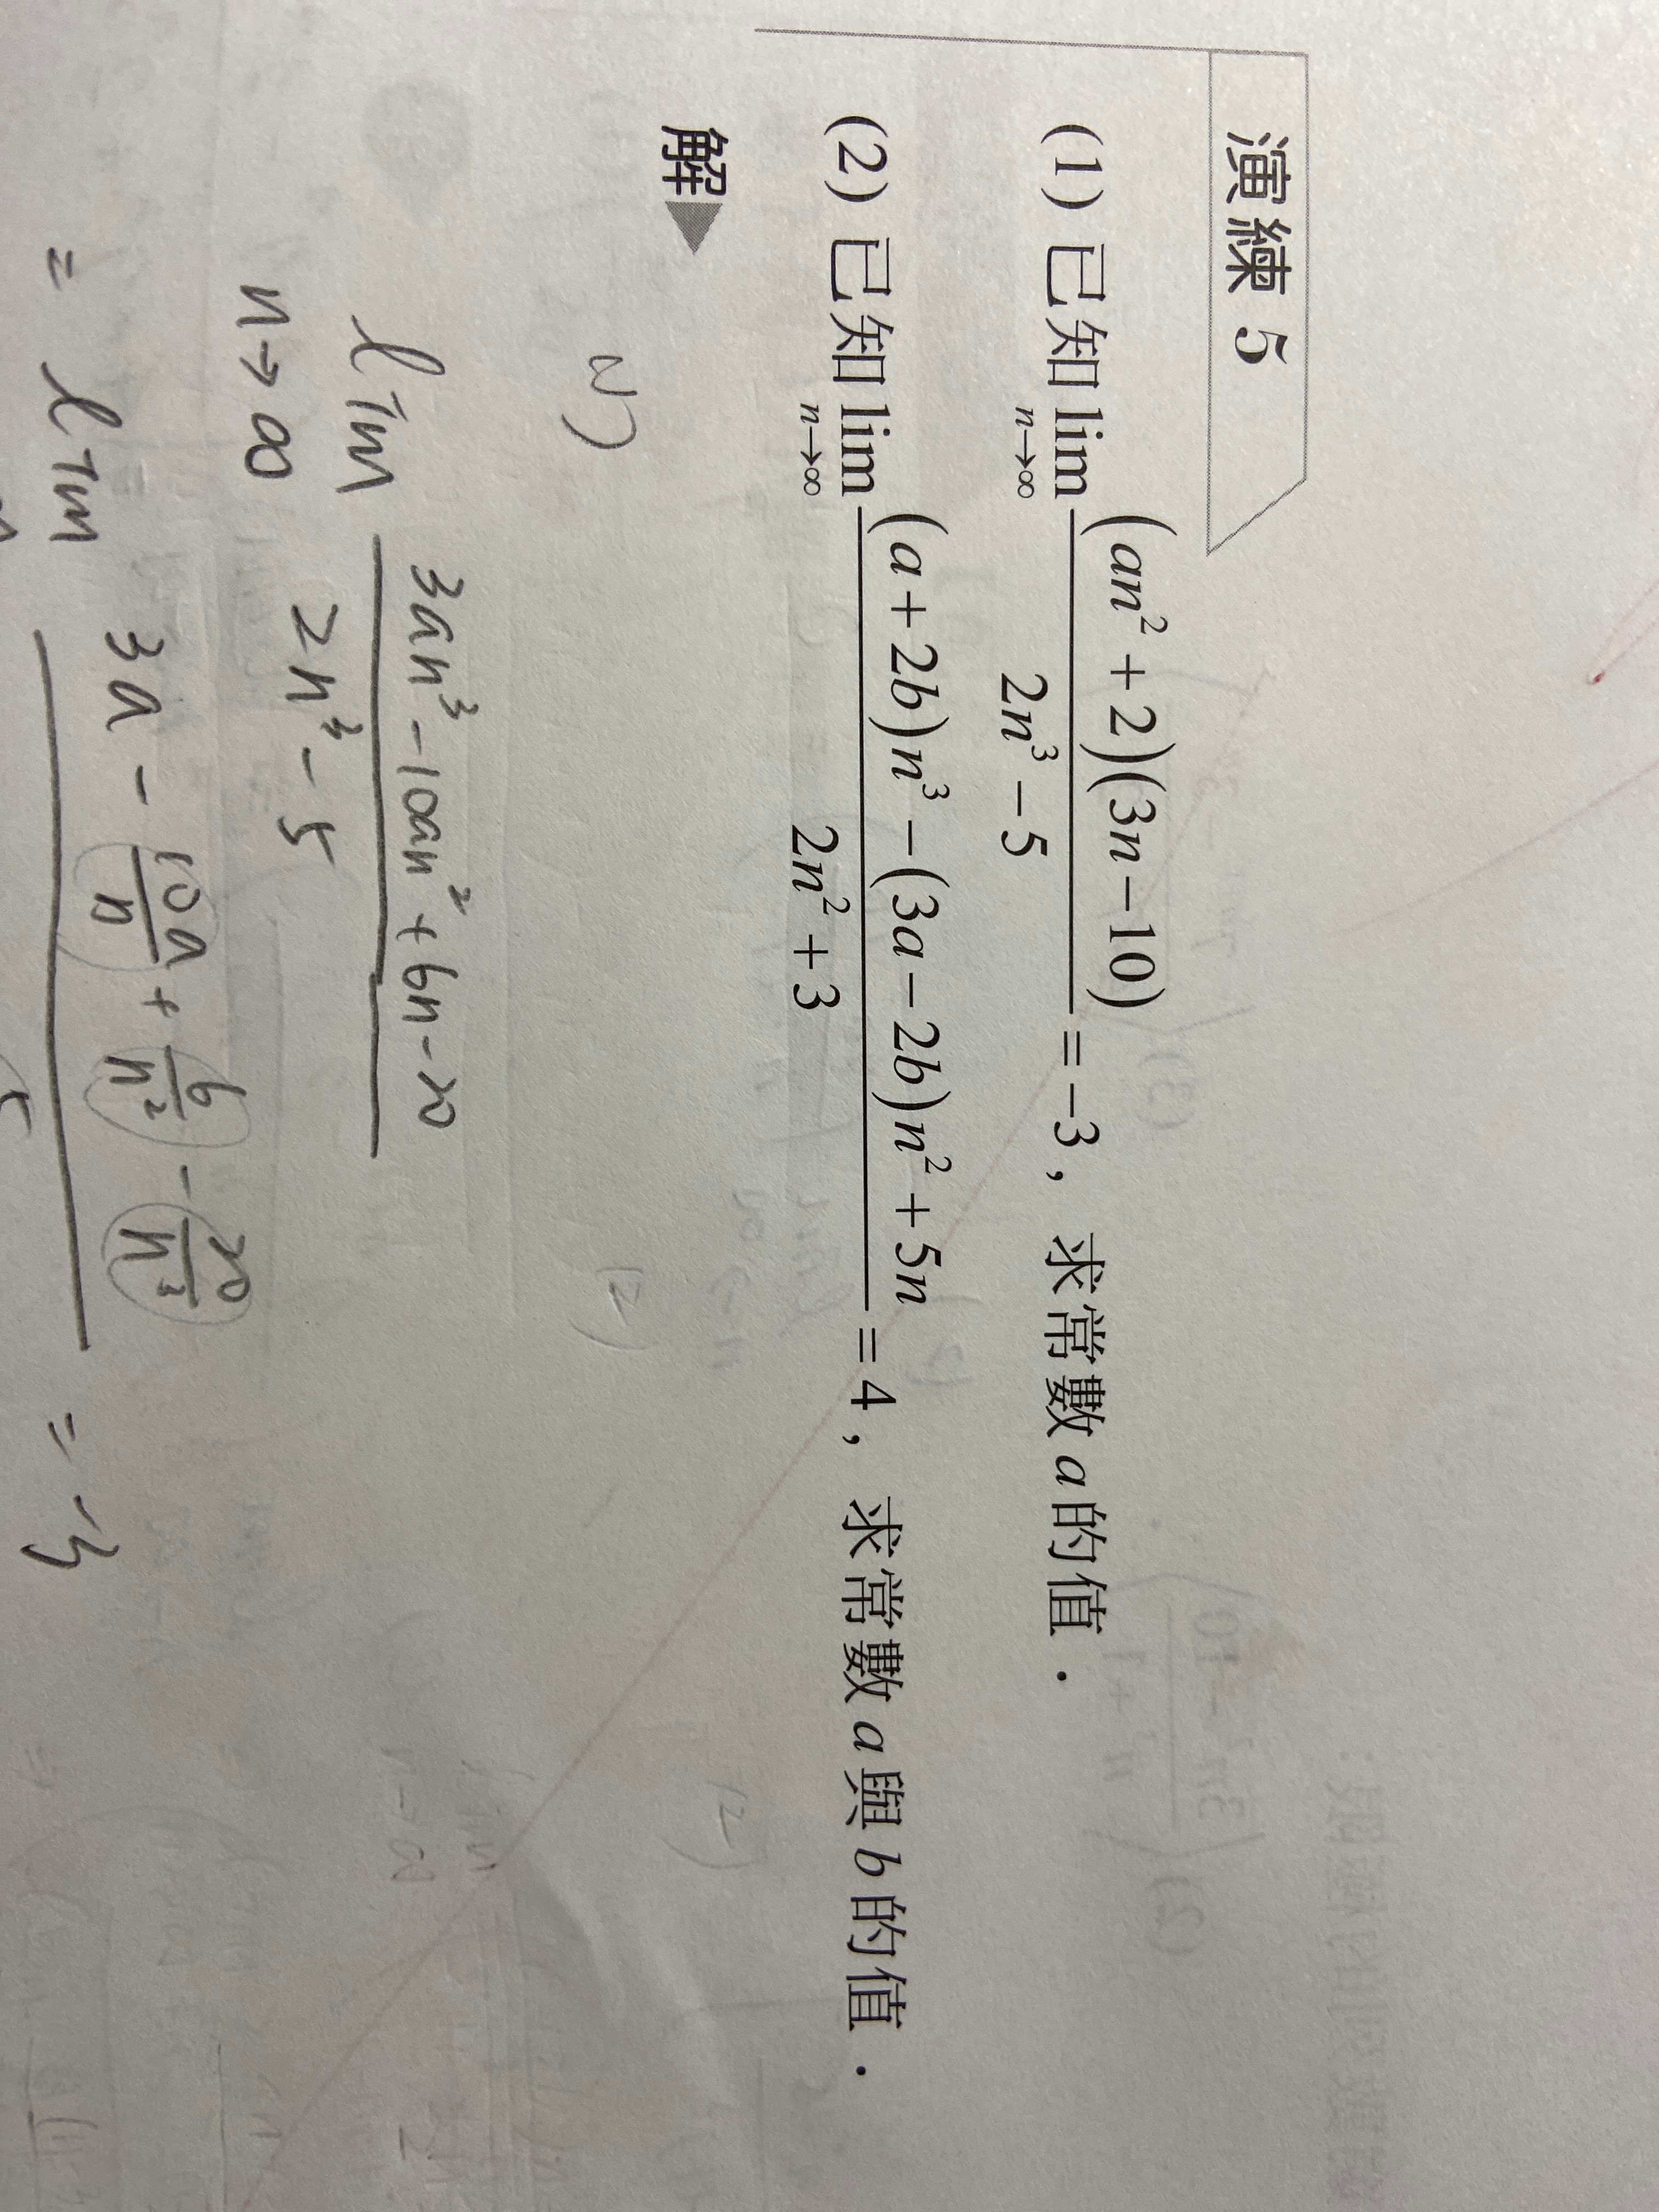 演練 5
(1) 已知 lim n→∞ (an² + 2)(3n − 10) / 2n³ − 5 = −3，求常數 a 的值．
(2) 已知 lim n→∞ (a + 2b)n³ − (3a − 2b)n² + 5n / 2n² + 3 = 4，求常數 a 與 b 的值．
解▶
(1)
(2)
lim n→∞ 3an³ − 10an² + 6n − 20 / 2n³ − 5
= lim 3a − 10a/n + 6/n² − 20/n³ = −3